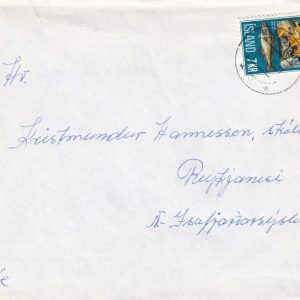 ÍSLAND 7 KR
Hr.
Kristmundur Hannesson, skóla
Reykjanesi
N-Ísafjarðarsýslu